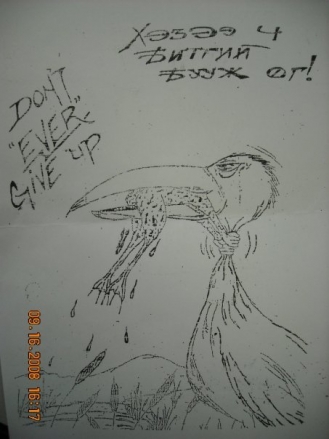 Хэзээ ч
Битгий
Бууж өг!
DON'T
"EVER
GIVE up
09.16.2008 16:17